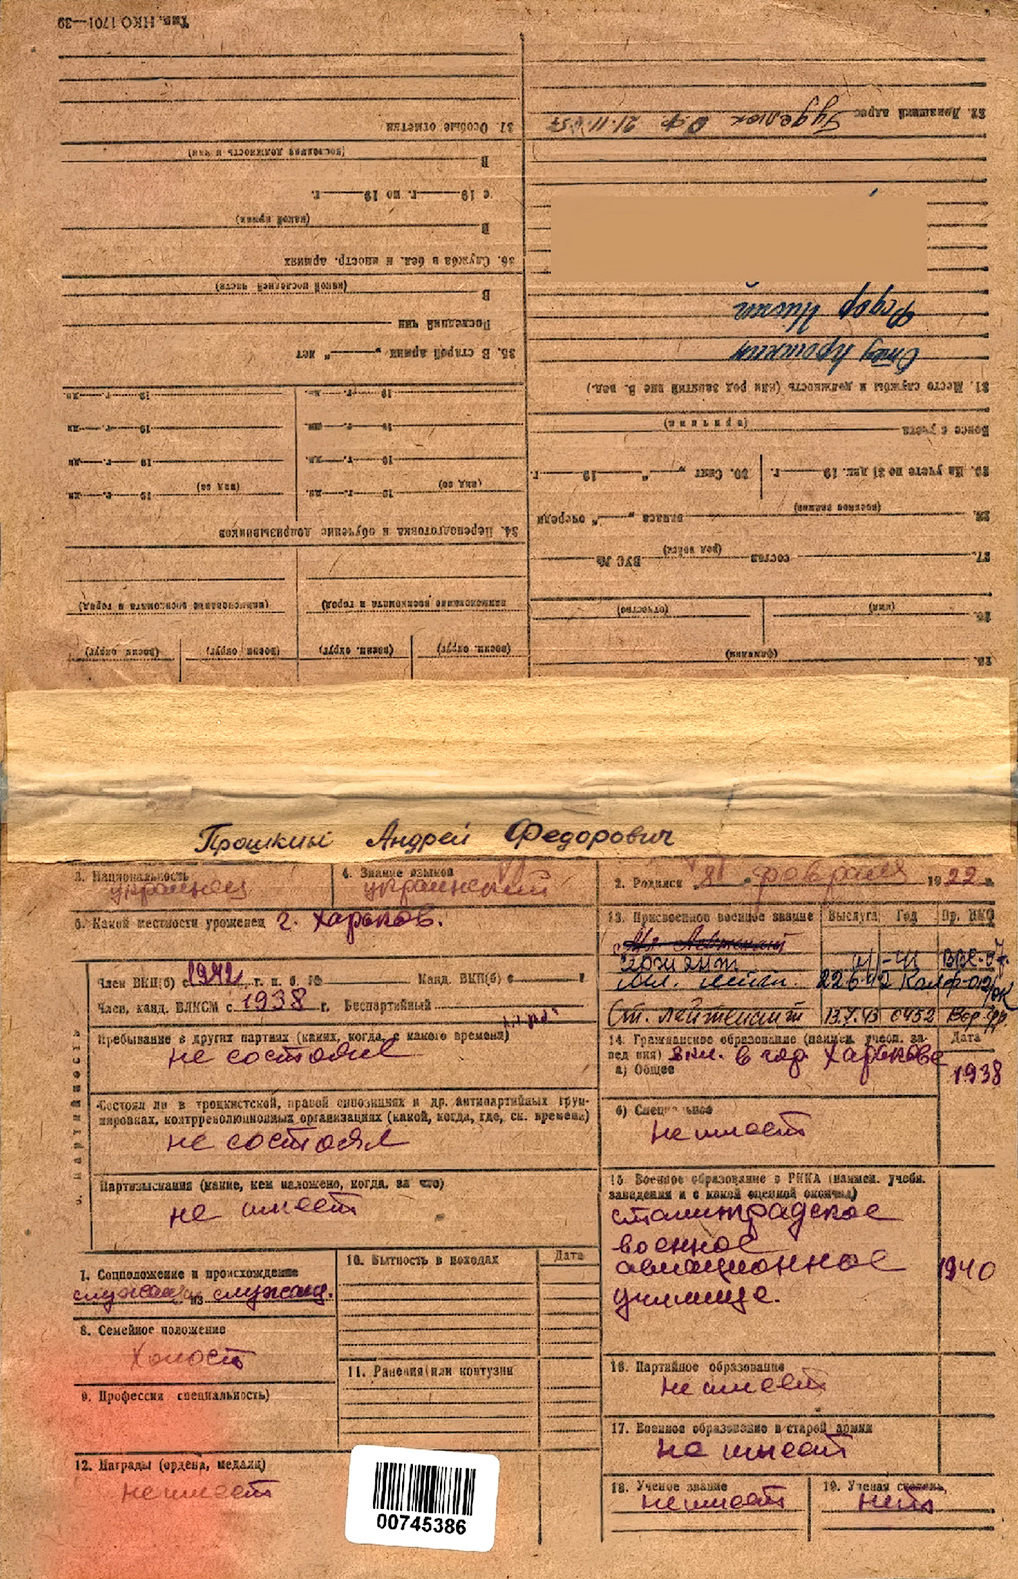 Тип. НКО 1701—39
32. Домашний адрес
31. Место службы и должность (или род занятий вне В. вед.)
Федор
Снят с учета
(причина)
29. На учете по 31 дек. 19 г.
30. Снят „ “ 19 г.
28.
(военное звание)
запаса „ “ очереди
27. состав (род войск) ВУС №
26.
(имя)
(отчество)
25.
(фамилия)
37. Особые отметки
(последняя должность и чин)
В
с 19 г. по 19 г.
(какой армии)
В
36. Служба в бел. и иностр. армиях
(какой последней части)
В
Последний чин
35. В старой армии „ “ лет
34. Переподготовка и обучение допризывников
(наименование военкомата и город)
(воен. округ)
Прошкин Андрей Федорович
3. Национальность
украинец
4. Знание языков
украинский
5. Какой местности уроженец г. Харьков.
Член ВКП(б) с 1942 г. п. б. № Канд. ВКП(б) с г
Член, канд. ВЛКСМ с 1938 г. Беспартийный
Пребывание в других партиях (каких, когда, с какого времени)
не состоял
Состоял ли в троцкистской, правой оппозициях и др. антипартийных груп-
пировках, контрреволюционных организациях (какой, когда, где, ск. времени)
не состоял
Партвзыскания (какие, кем наложено, когда, за что)
не имеет
6. Партийность
7. Соцположение и происхождение
служащий из служащ.
8. Семейное положение
Холост
9. Профессия специальность)
10. Бытность в походах
Дата
11. Ранения или контузии
12. Награды (ордена, медали)
не имеет
00745386
2. Родился „8“ февраля 1922 г.
13. Присвоенное военное звание Выслуга Год Пр. НКО
Мл. Лейтенант
сержант
Мл. лейт.
Ст. лейтенант 13.7.43 0452
14. Гражданское образование (наимен. учебн. за-
вед ния) в гор. Харькове
Дата
а) Общее
1938
б) Специальное
Не имеет
15. Военное образование в РККА (наимен. учебн.
заведения и с какой оценкой окончил)
Сталинградское
военное
авиационное
училище.
1940
16. Партийное образование
не имеет
17. Военное образование в старой армии
не имеет
18. Ученое звание
не имеет
19. Ученая степень
нет